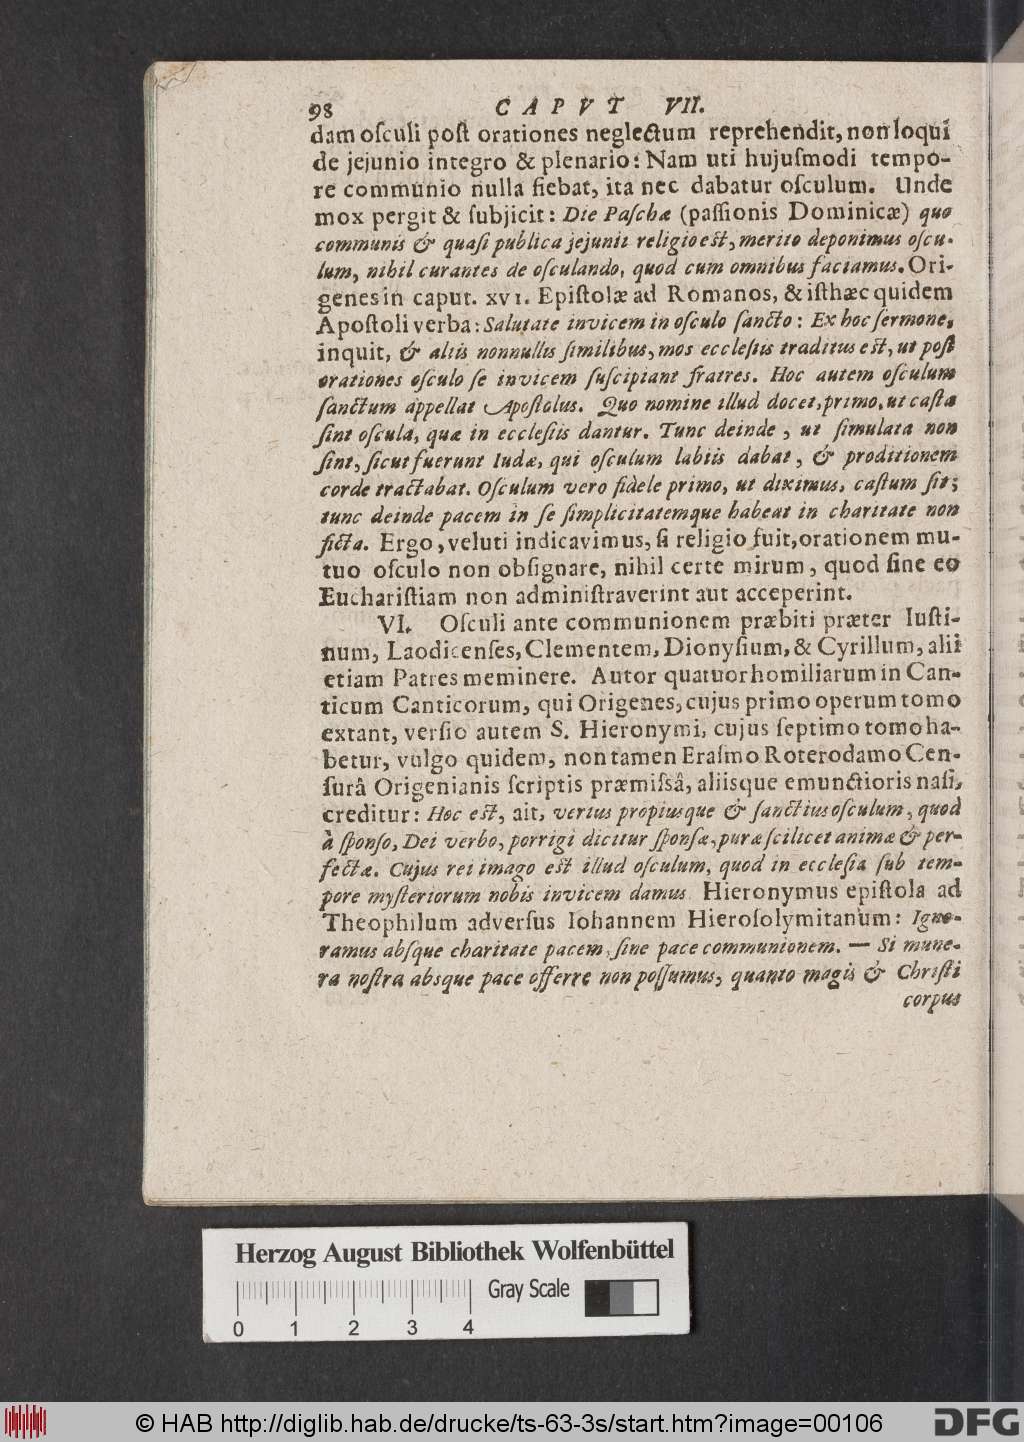 98 CAPVT VII.
dam oſculi poſt orationes neglectum reprehendit, non loqui
de jejunio integro & plenario: Nam uti hujuſmodi tempo-
re communio nulla fiebat, ita nec dabatur oſculum. Unde
mox pergit & ſubjicit: Die Paſchæ (paſſionis Dominicæ) quo
communis & quaſi publica jejunii religio eſt, merito deponimus oſcu-
lum, nihil curantes de oſculando, quod cum omnibus faciamus. Ori-
genes in caput. XVI. Epiſtolæ ad Romanos, & iſthæc quidem
Apoſtoli verba: Salutate invicem in oſculo ſancto: Ex hoc ſermone,
inquit, & aliis nonnullis ſimilibus, mos eccleſiis traditus eſt, ut poſt
orationes oſculo ſe invicem ſuſcipiant fratres. Hoc autem oſculum
ſanctum appellat Apoſtolus. Quo nomine illud docet, primo, ut caſta
ſint oſcula, quæ in eccleſiis dantur. Tunc deinde, ut ſimulata non
ſint, ſicut fuerunt Iudæ, qui oſculum labiis dabat, & proditionem
corde tractabat. Oſculum vero fidele primo, ut diximus, caſtum ſit;
tunc deinde pacem in ſe ſimplicitatemque habeat in charitate non
ficta. Ergo, veluti indicavimus, ſi religio fuit, orationem mu-
tuo oſculo non obſignare, nihil certe mirum, quod ſine eo
Euchariſtiam non adminiſtraverint aut acceperint.
VI. Oſculi ante communionem præbiti præter Iuſti-
num, Laodicenſes, Clementem, Dionyſium, & Cyrillum, alii
etiam Patres meminere. Autor quatuor homiliarum in Can-
ticum Canticorum, qui Origenes, cujus primo operum tomo
extant, verſio autem S. Hieronymi, cujus ſeptimo tomo ha-
betur, vulgo quidem, non tamen Eraſmo Roterodamo Cen-
ſurâ Origenianis ſcriptis præmiſsâ, aliisque emunctioris naſi,
creditur: Hoc eſt, ait, verius propiusque & ſanctius oſculum, quod
à ſponſo, Dei verbo, porrigi dicitur ſponſæ, puræ ſcilicet animæ & per-
fectæ. Cujus rei imago eſt illud oſculum, quod in eccleſia ſub tem-
pore myſteriorum nobis invicem damus. Hieronymus epiſtola ad
Theophilum adverſus Iohannem Hieroſolymitanum: Igno-
ramus abſque charitate pacem, ſine pace communionem. — Si mune-
ra noſtra absque pace offerre non poſſumus, quanto magis & Chriſti
corpus
Herzog August Bibliothek Wolfenbüttel
Gray Scale
0 1 2 3 4
© HAB http://diglib.hab.de/drucke/ts-63-3s/start.htm?image=00106
DFG